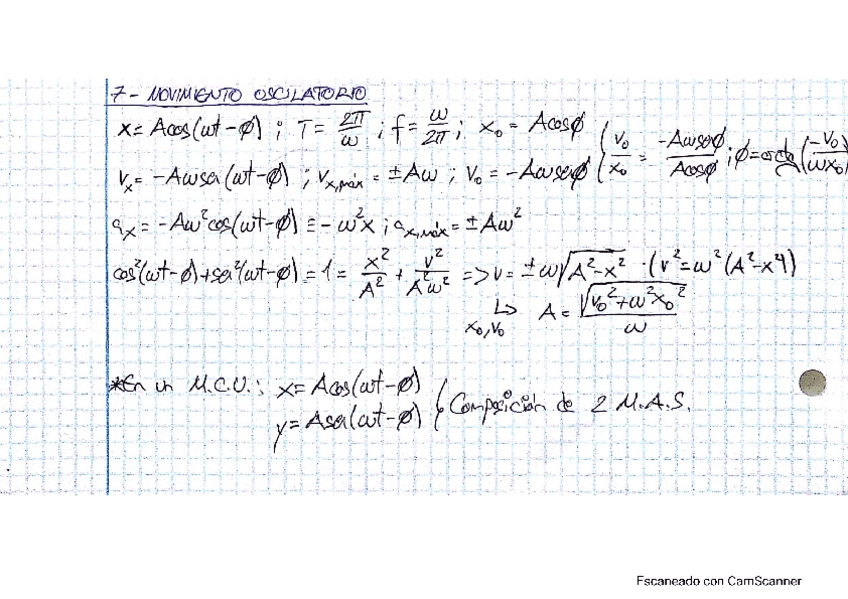 7- MOVIMIENTO OSCILATORIO
x = Acos(ωt-ϕ) ; T = 2π/ω ; f = ω/2π ; x₀ = Acosϕ { v₀/x₀ = -Aωsenϕ/Acosϕ ; ϕ = arctg(-v₀/ωx₀)
vₓ = -Aωsen(ωt-ϕ) ; vₓ,máx = ±Aω ; v₀ = -Aωsenϕ
aₓ = -Aω²cos(ωt-ϕ) = -ω²x ; aₓ,máx = ±Aω²
cos²(ωt-ϕ)+sen²(ωt-ϕ) = 1 = x²/A² + v²/A²ω² => v = ±ω√(A²-x²) · (v² = ω²(A²-x²))
↳ x₀,v₀ A = √(v₀²+ω²x₀²)/ω
*En un M.C.U.: x = Acos(ωt-ϕ)
y = Asen(ωt-ϕ) } Composición de 2 M.A.S.
Escaneado con CamScanner